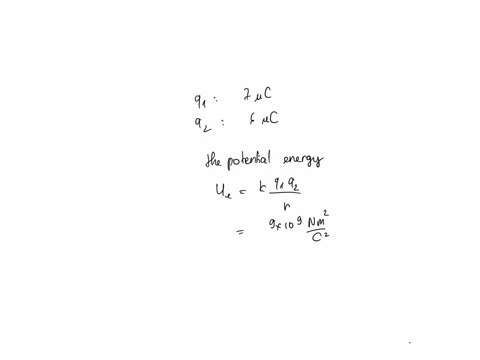 q1 : 7 μC
q2 : 6 μC
the potential energy
Ue = k q1 q2 / r
= 9×10^9 Nm^2 / C^2